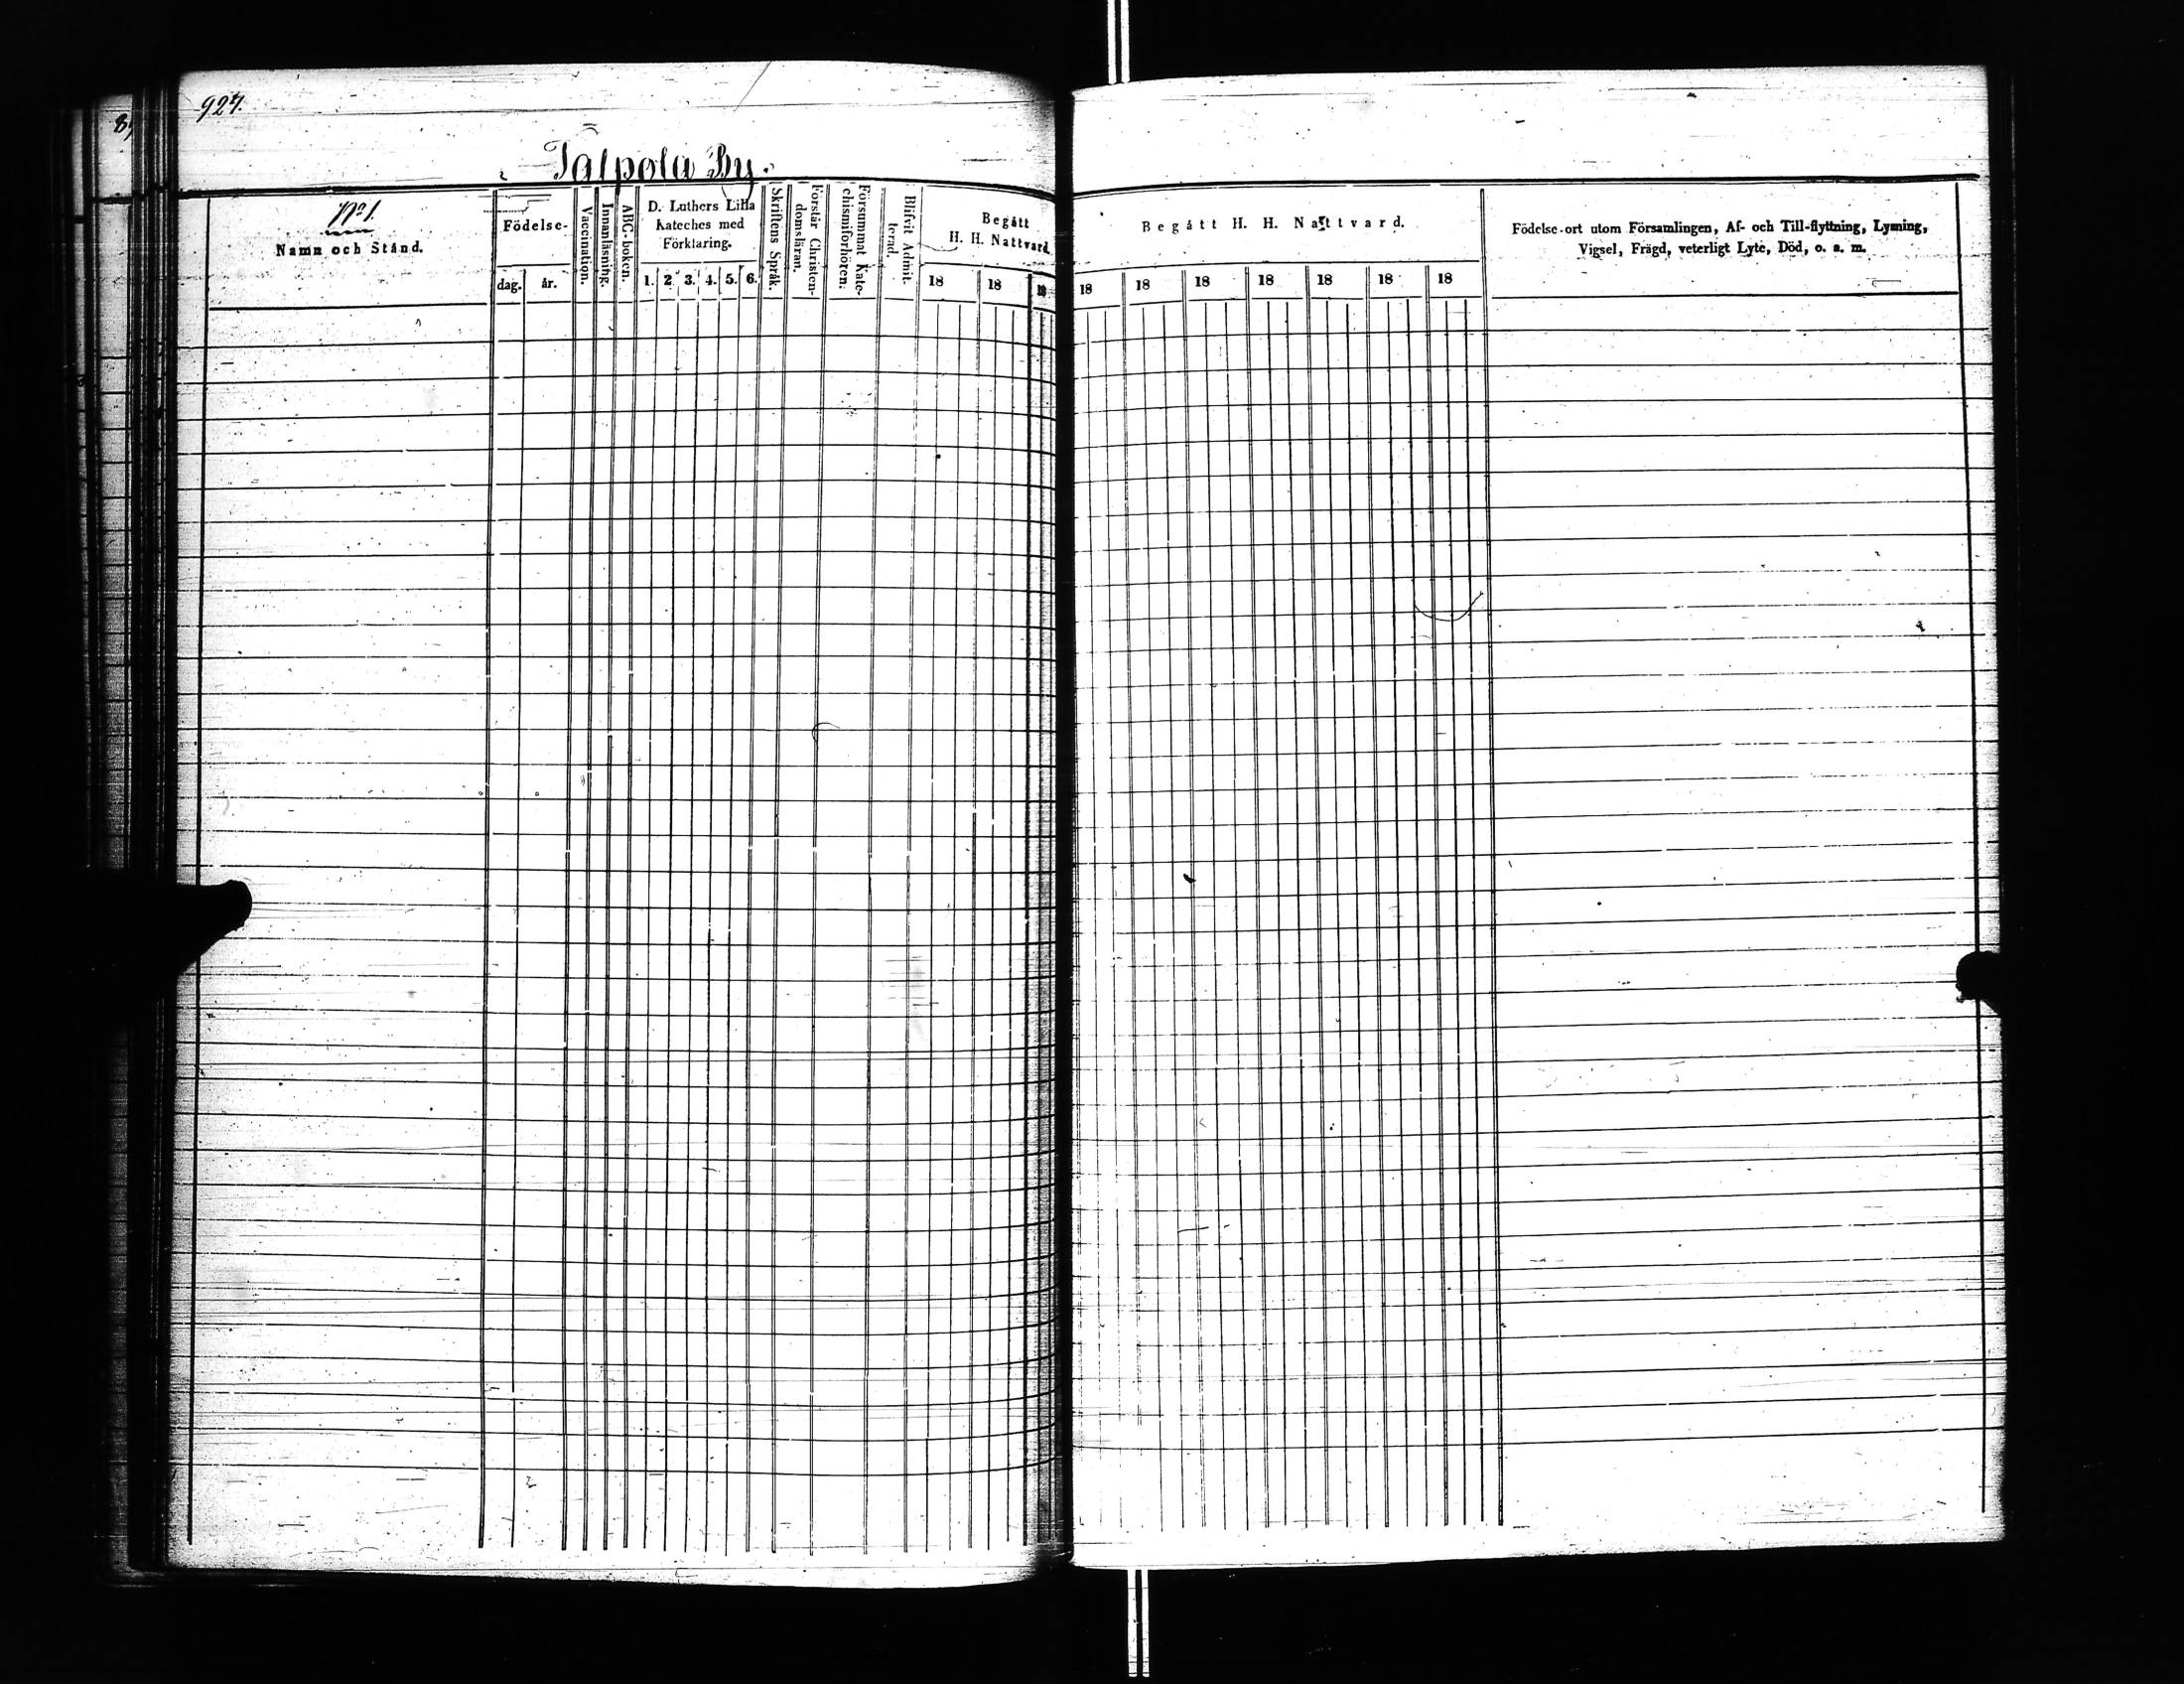 927.
Talpola By.
No 1.
Namn och Stånd.
Födelse-
dag.
år.
Vaccination.
Innanläsning.
ABC-boken.
D. Luthers Lilla
Kateches med
Förklaring.
1. 2. 3. 4. 5. 6.
Skriftens Språk.
Förstår Christen-
domsläran.
Försummat Kate-
chismiförhören.
Blifvit Admit-
terad.
Begått
H. H. Nattvard
18 18 18
Begått H. H. Nattvard.
18 18 18 18 18 18 18
Födelse-ort utom Församlingen, Af- och Till-flyttning, Lysning,
Vigsel, Frägd, veterligt Lyte, Död, o. s. m.